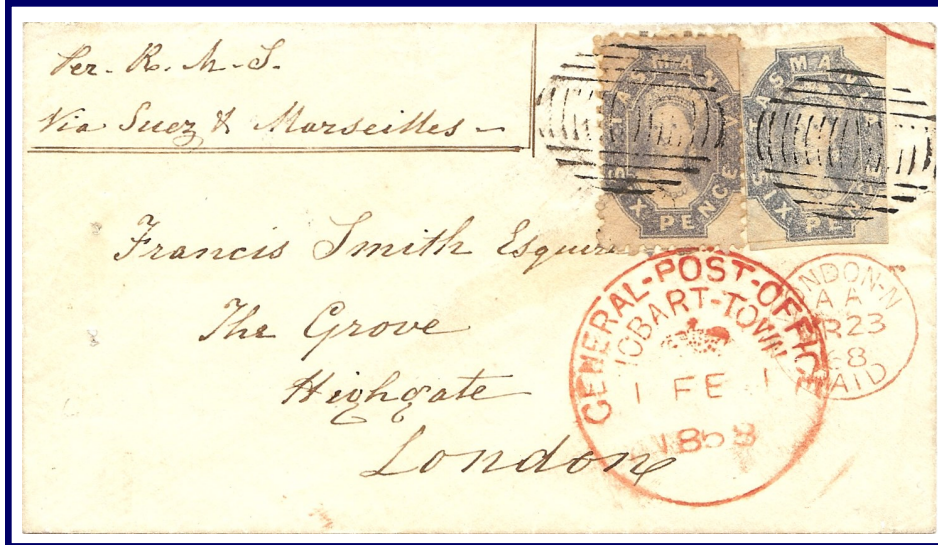 Per. R. M. S.
Via Suez & Marseilles -
TASMANIA
SIX PENCE
TASMANIA
SIX PENCE
Francis Smith Esquire
The Grove
Highgate
London
GENERAL-POST-OFFICE
HOBART-TOWN
1 FE 1
1868
LONDON-N
AA
23
68
PAID